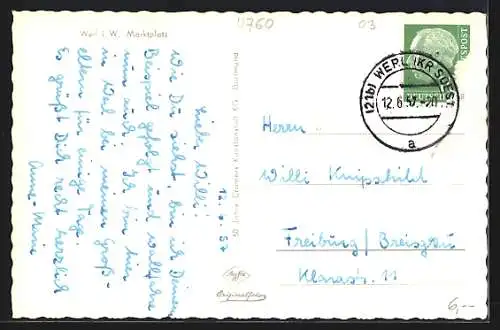 4760
03
Werl i. W. Marktplatz
12. 6. 57
Liebe Willi!
Wie Du siehst, bin ich Deinem
Beispiel gefolgt und wallfahre
nun auch. Ich bin hier
in Werl bei meinen Groß-
eltern für einige Tage.
Es grüßt Dich recht herzlich
Anne-Marie
50 Jahre Cramers Kunstanstalt KG Dortmund
Original-Foto
POST
(21b) WERL (KR SOEST)
12.6.57.-20
a
Herrn
Willi Knipschild
Freiburg / Breisgau
Klarastr. 11
6,--